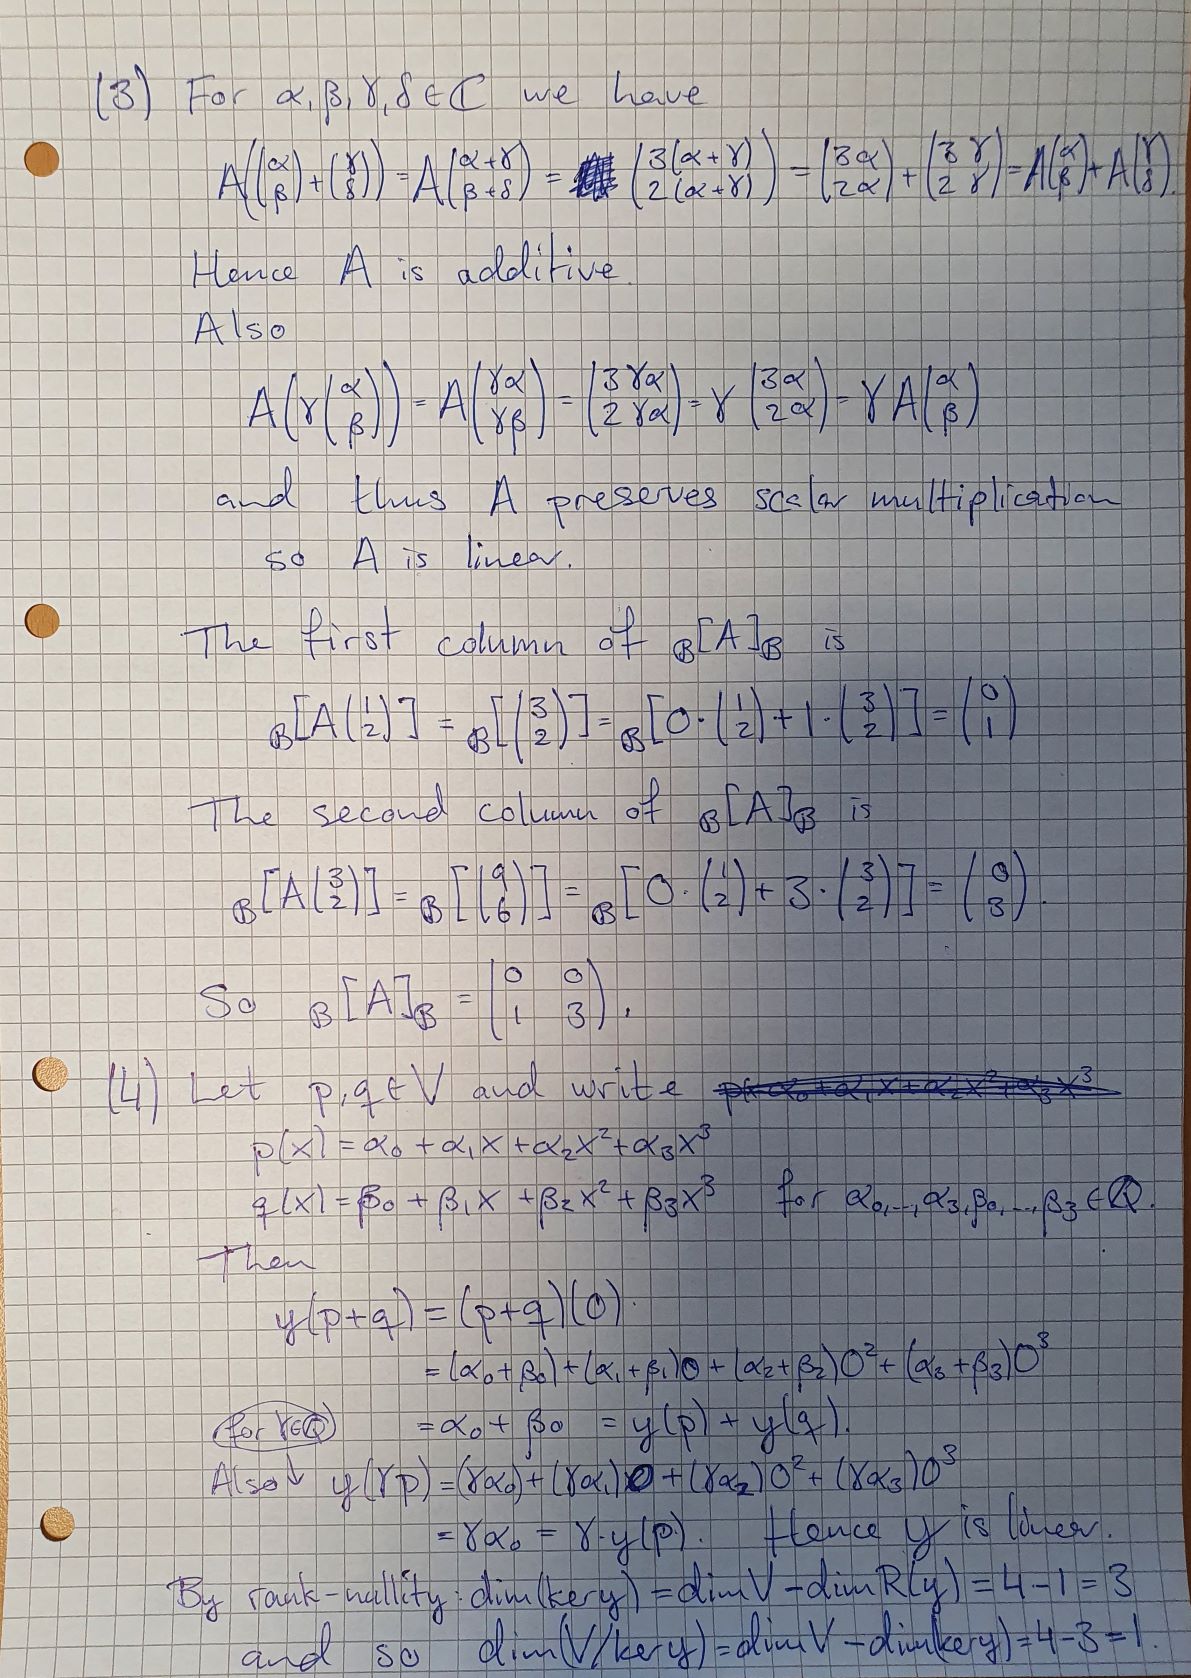 (3) For α, β, γ, δ ∈ ℂ we have
A((α β) + (γ δ)) = A(α+γ β+δ) = (3(α+γ) 2(α+γ)) = (3α 2α) + (3γ 2γ) = A(α β) + A(γ δ).
Hence A is additive.
Also
A(γ(α β)) = A(γα γβ) = (3γα 2γα) = γ(3α 2α) = γA(α β)
and thus A preserves scalar multiplication
so A is linear.
The first column of B[A]B is
B[A(1 2)] = B[(3 2)] = B[0·(1 2) + 1·(3 2)] = (0 1)
The second column of B[A]B is
B[A(3 2)] = B[(9 6)] = B[0·(1 2) + 3·(3 2)] = (0 3).
So B[A]B = (0 0 1 3).
(4) Let p, q ∈ V and write
p(x) = α₀ + α₁x + α₂x² + α₃x³
q(x) = β₀ + β₁x + β₂x² + β₃x³ for α₀,...,α₃, β₀,...,β₃ ∈ ℚ.
Then
y(p+q) = (p+q)(0)
= (α₀+β₀) + (α₁+β₁)0 + (α₂+β₂)0² + (α₃+β₃)0³
= α₀ + β₀ = y(p) + y(q).
(for γ∈ℚ)
Also↓ y(γp) = (γα₀) + (γα₁)0 + (γα₂)0² + (γα₃)0³
= γα₀ = γ·y(p). Hence y is linear.
By rank-nullity: dim(ker y) = dim V - dim R(y) = 4-1 = 3
and so dim(V/ker y) = dim V - dim(ker y) = 4-3 = 1.